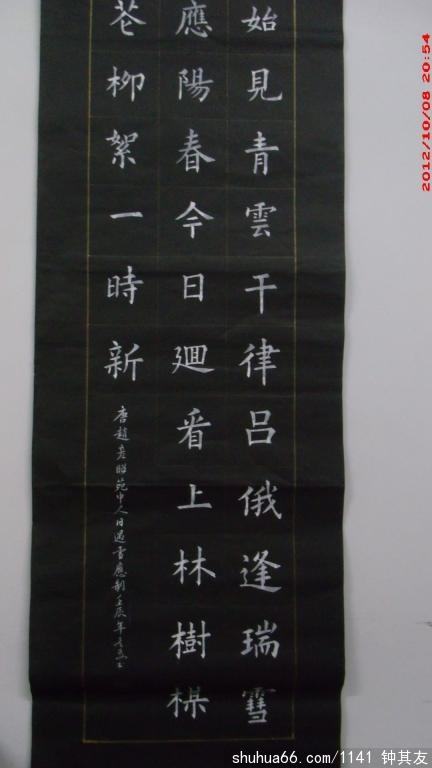 始見青雲干律呂俄逢瑞雪
應陽春今日迴看上林樹楳
花柳絮一時新
唐趙彥昭苑中人日遇雪應制壬辰年
2012/10/08 20:54
shuhua66.com/1141 钟其友